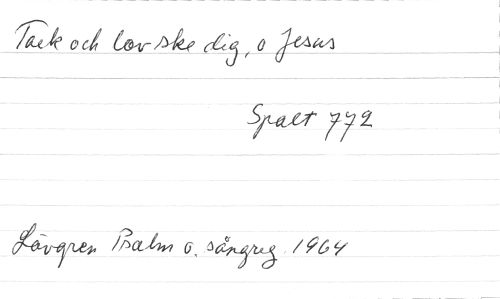 Tack och lov ske dig, o Jesus
Spalt 772
Lövgren Psalm o. sångreg. 1964